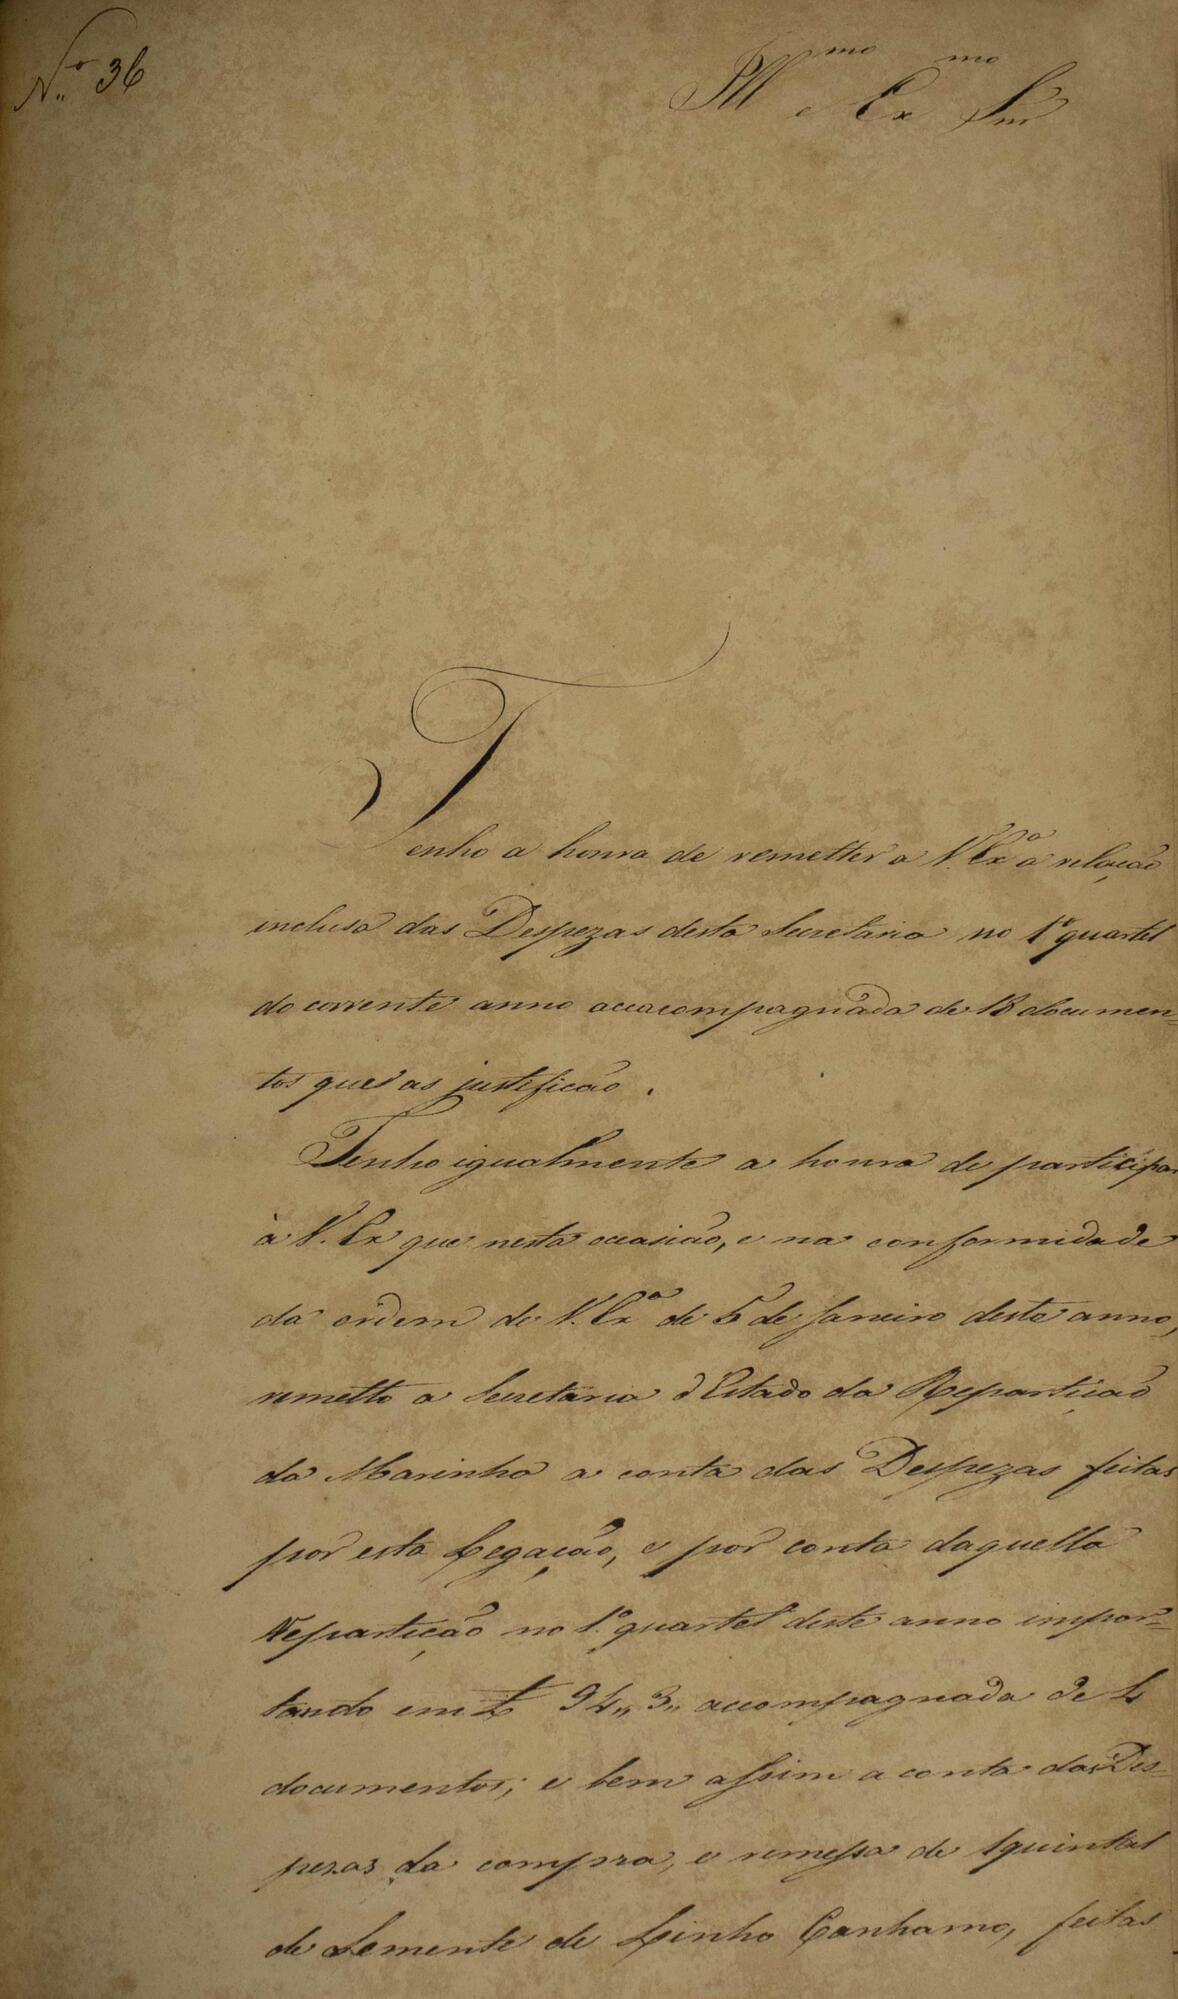 N.º 36
Ill.mo e Ex.mo Snr
Tenho a honra de remetter a V. Exª a relação
inclusa das Despezas desta Secretaria no 1º quartel
do corrente anno accacompagnada de 13 documen=
tos que as justificão.
Tenho igualmente a honra de participar
à V. Ex que nesta occasião, e na conformidade
da ordem de V. Exª de 5 de Janeiro deste anno,
remetto a Secretaria d'Estado da Repartição
da Marinha a conta das Despezas feitas
por esta Legação, e por conta daquella
Repartição no 1º quartel deste anno impor=
tando em £ 94,, 3,, accompagnada de 4
documentos; e bem assim a conta das Des=
pezas da compra, e remessa de 1 quintal
de Semente de Linho Canhamo, feitas